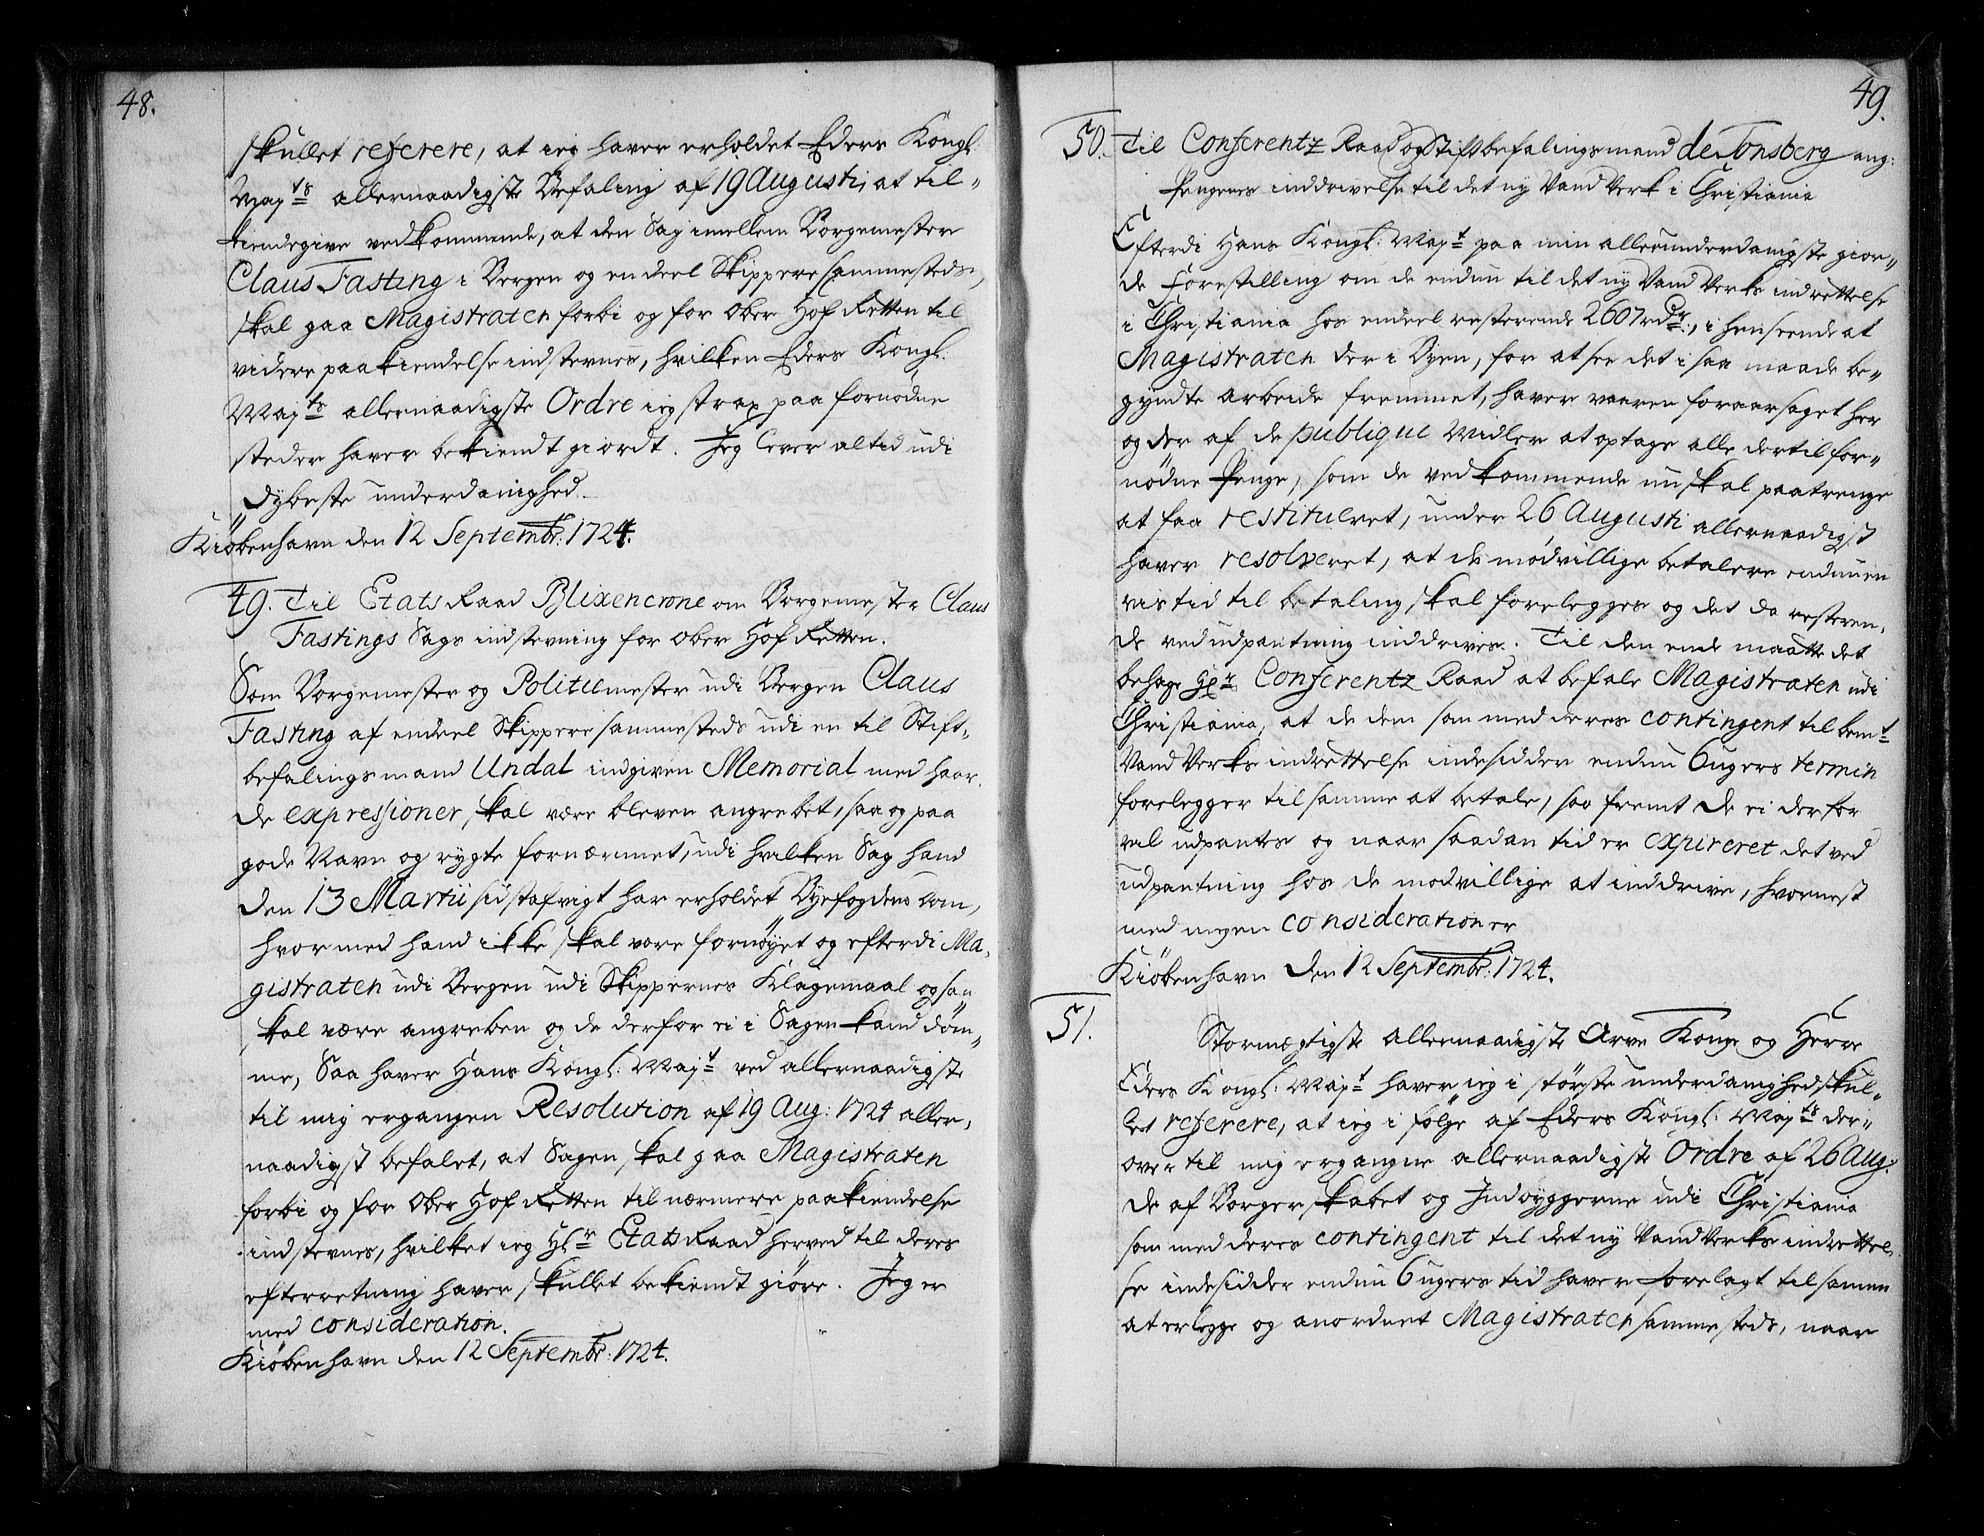 48.
skullet referere, at ieg haver erholdet Eders Kongl:
Mayts allernaadigste Befaling af 19 Augusti, at til-
kiendegive vedkommende, at den Sag imellem Borgemester
Claus Fasting i Bergen og en deel Skippere sammesteds,
skal gaa Magistraten forbi og for Ober Hof Retten til
videre paakiendelse indstevnes, hvilken Eders Kongl:
Mayts allernaadigste Ordre ieg strax paa fornødne
steder haver bekiendt giordt. Jeg lever altid udi
dybeste underdanighed.
Kiøbenhavn den 12 Septembr: 1724.
49. Til Etats Raad Blixencrone om Borgemester Claus
Fastings Sags indstevning for Ober Hof Retten.
Som Borgemester og Politiemester udi Bergen Claus
Fasting af endeel Skippere sammesteds udi en til Stift-
befalingsmand Undal indgiven Memorial med haar-
de expressioner, skal være bleven angrebet, saa og paa
gode Navn og rygte fornærmet, udi hvilken Sag hand
den 13 Martii sidstafvigt har erholdet Byefogdens Dom,
hvormed hand ikke skal være fornøyet og efterdi Ma-
gistraten udi Bergen udi Skippernes Klagemaal ogsaa
skal være angreben og de derfor ei i Sagen kand døm-
me, Saa haver Hans Kongl: Mayt ved allernaadigste
til mig ergangen Resolution af 19 Aug: 1724 aller-
naadigst befalet, at Sagen skal gaa Magistraten
forbi og for Ober Hof Retten til nærmere paakiendelse
indstevnes, hvilket ieg Hr Etats Raad herved til deres
efterretning haver skullet bekiendt giøre. Jeg er
med consideration.
Kiøbenhavn den 12 Septembr: 1724.
49.
50. Til Conferentz Raad og Stiftsbefalingsmand de Tonsberg ang:
Pengenes inddrivelse til det ny Vand Verk i Christiania
Efterdi Hans Kongl: Mayt paa min allerunderdanigste gior-
de Forestilling om de endnu til det ny Vand Verks indrettelse
i Christiania hos endeel resterende 2607 rDr, i henseende at
Magistraten der i Byen, for at see det i saa maade be-
gyndte arbeide fremmet, haver været foraarsaget her
og der af de publique Midler at optage alle dertil for-
nødne Penge, som de vedkommende nu skal paatrenge
at faa restitueret, under 26 Augusti allernaadigst
haver resolveret, at de modvillige betalere endnu en
vis tid til betaling skal forelegges og det da resteren-
de ved udpantning inddrives. Til den ende maatte det
behage Hr Conferentz Raad at befale Magistraten udi
Christiania, at de dem som med deres contingent til bemt
Vand Verks indrettelse indesidder endnu 6 ugers termin
forelegger til samme at betale, saa fremt de ei derfor
vil udpantes og naar saadan tid er expireret det ved
udpantning hos de modvillige at inddrive, hvornest
med megen consideration er
Kiøbenhavn den 12 Septembr: 1724.
51.
Stormægtigste allernaadigste Arve Konge og Herre
Eders Kongl: Mayt haver ieg i største underdanighed skul-
let referere, at ieg i følge af Eders Kongl: Mayts der-
over til mig ergangne allernaadigste Ordre af 26 Aug:
de af Borgerskabet og Indbyggerne udi Christiania
som med deres contingent til det ny Vand Verks indrettel-
se indesidder endnu 6 ugers tid haver forelagt til samme
at erlegge og anordnet Magistraten sammesteds, naar